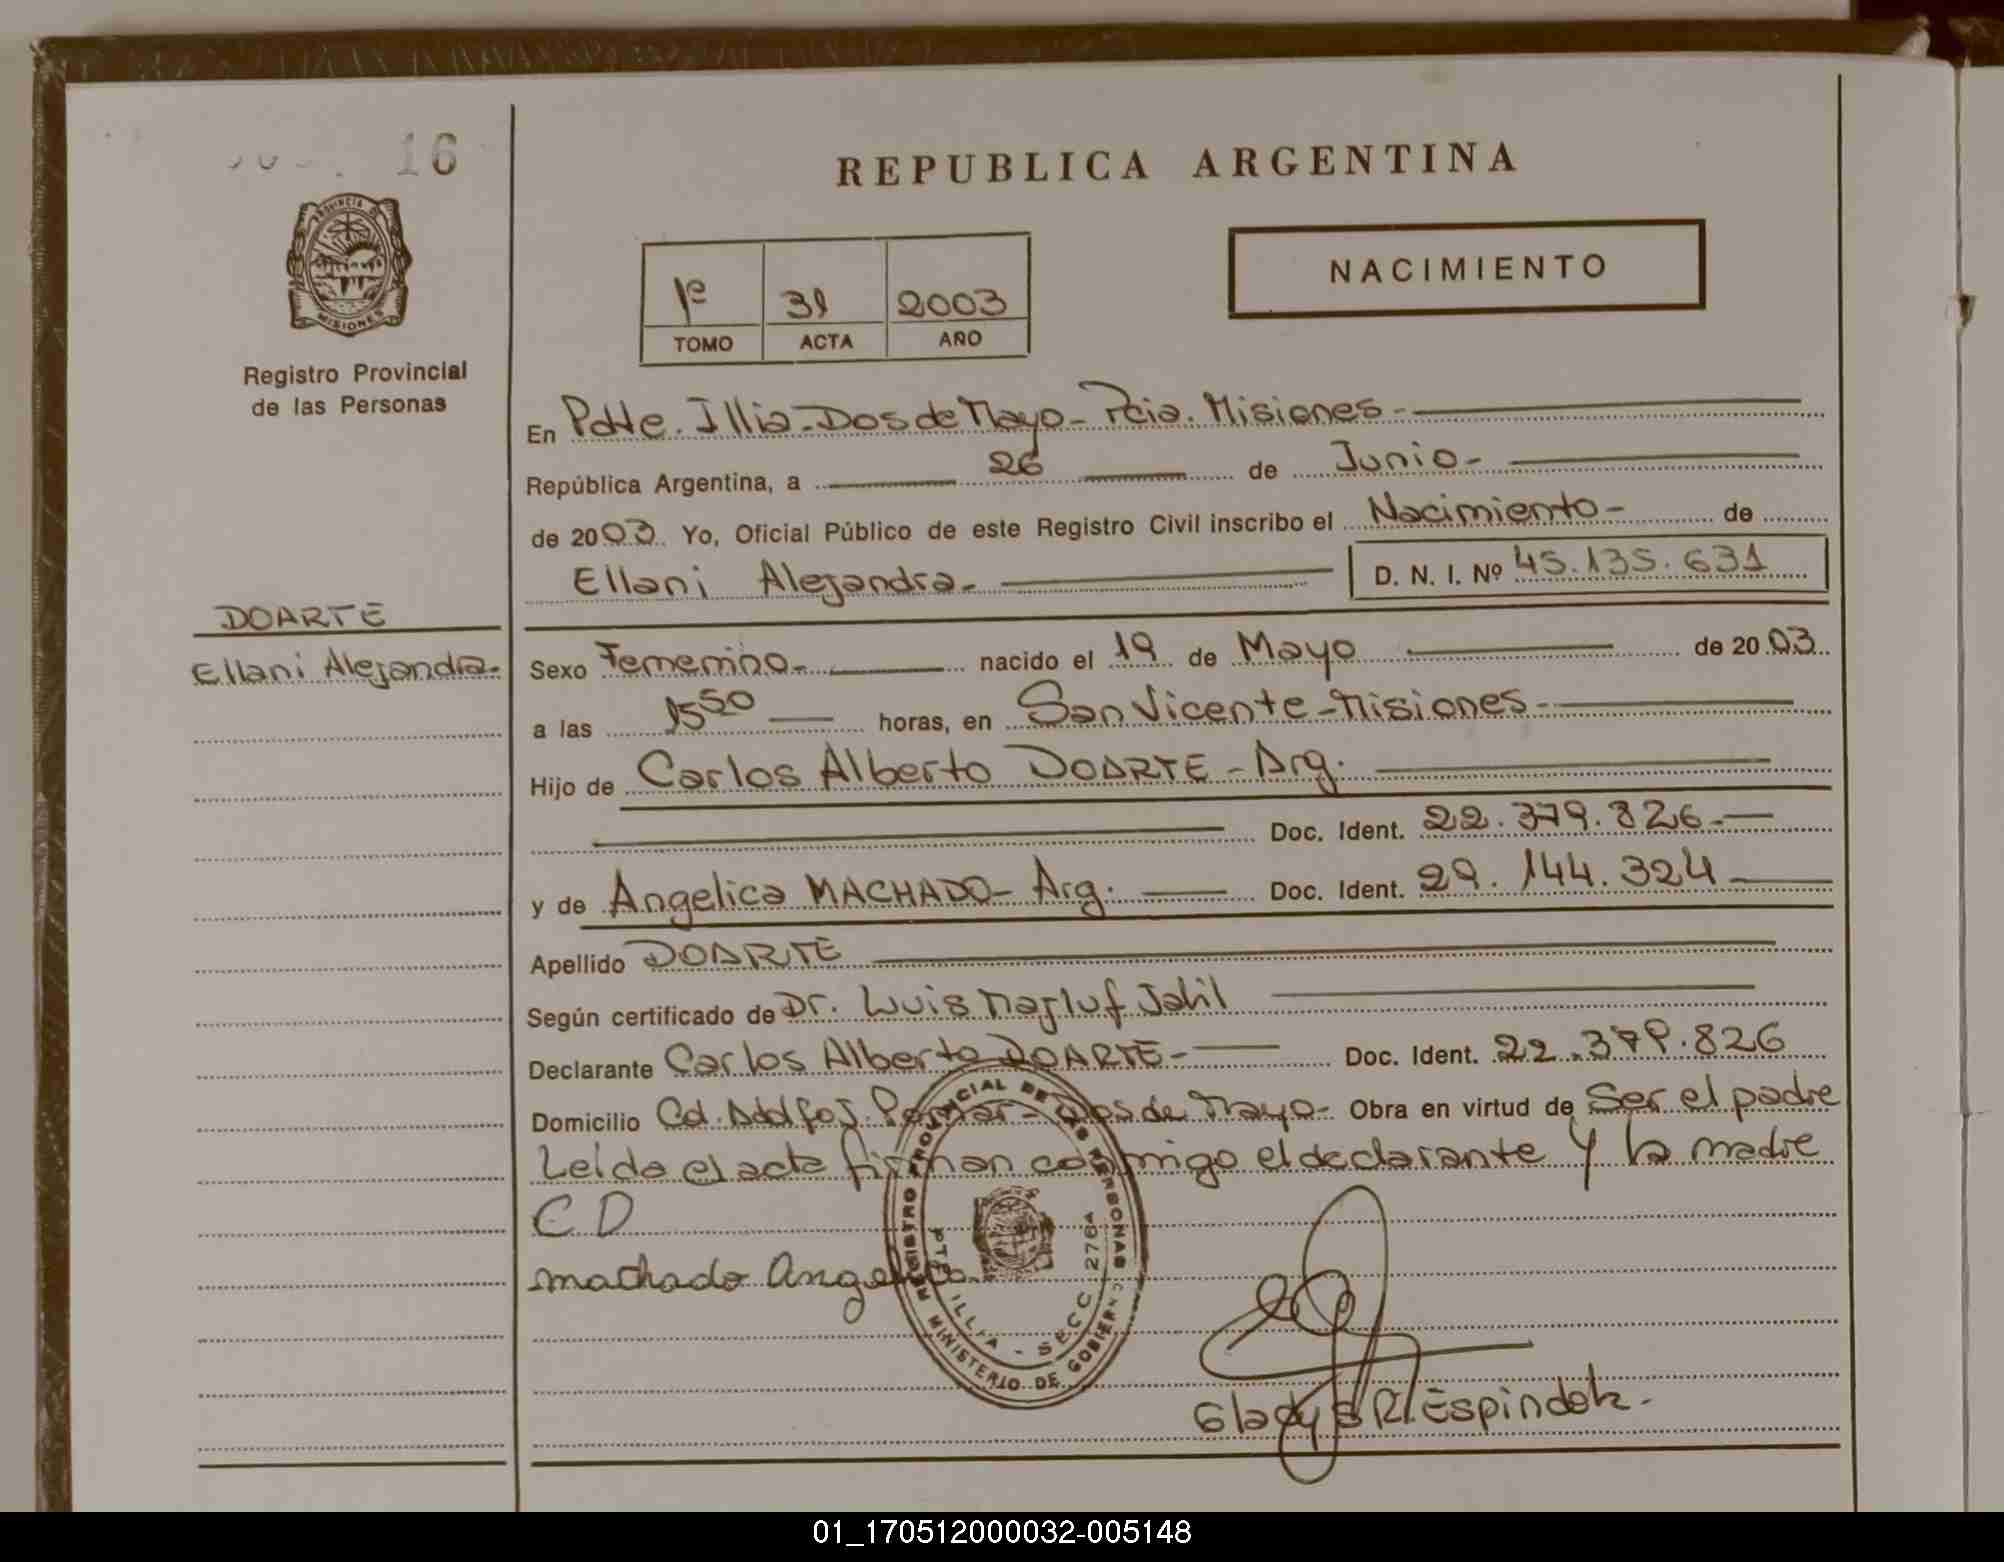 16
REPUBLICA ARGENTINA
PROVINCIA DE
MISIONES
Registro Provincial
de las Personas
NACIMIENTO
1º 31 2003
TOMO ACTA AÑO
En Pdte. Illia - Dos de Mayo - Pcia. Misiones -
República Argentina, a 26 de Junio -
de 2003. Yo, Oficial Público de este Registro Civil inscribo el Nacimiento - de
Ellani Alejandra - D. N. I. Nº 45.135.631
DOARTE
Ellani Alejandra -
Sexo Femenino - nacido el 19 de Mayo de 2003
a las 15 50 horas, en San Vicente - Misiones -
Hijo de Carlos Alberto DOARTE - Arg.
Doc. Ident. 22.379.826 -
y de Angelica MACHADO - Arg. Doc. Ident. 29.144.324
Apellido DOARTE
Según certificado de Dr. Luis Majluf Jalil
Declarante Carlos Alberto DOARTE - Doc. Ident. 22.379.826
Domicilio Cd. Adolfo J. Pomar - Dos de Mayo - Obra en virtud de Ser el padre
Leída el acta firman conmigo el declarante y la madre
C D
machado Angelica
REGISTRO PROVINCIAL DE LAS PERSONAS
MINISTERIO DE GOBIERNO
PTE ILLIA - SECC 2764
Gladys R. Espindola -
01_170512000032-005148